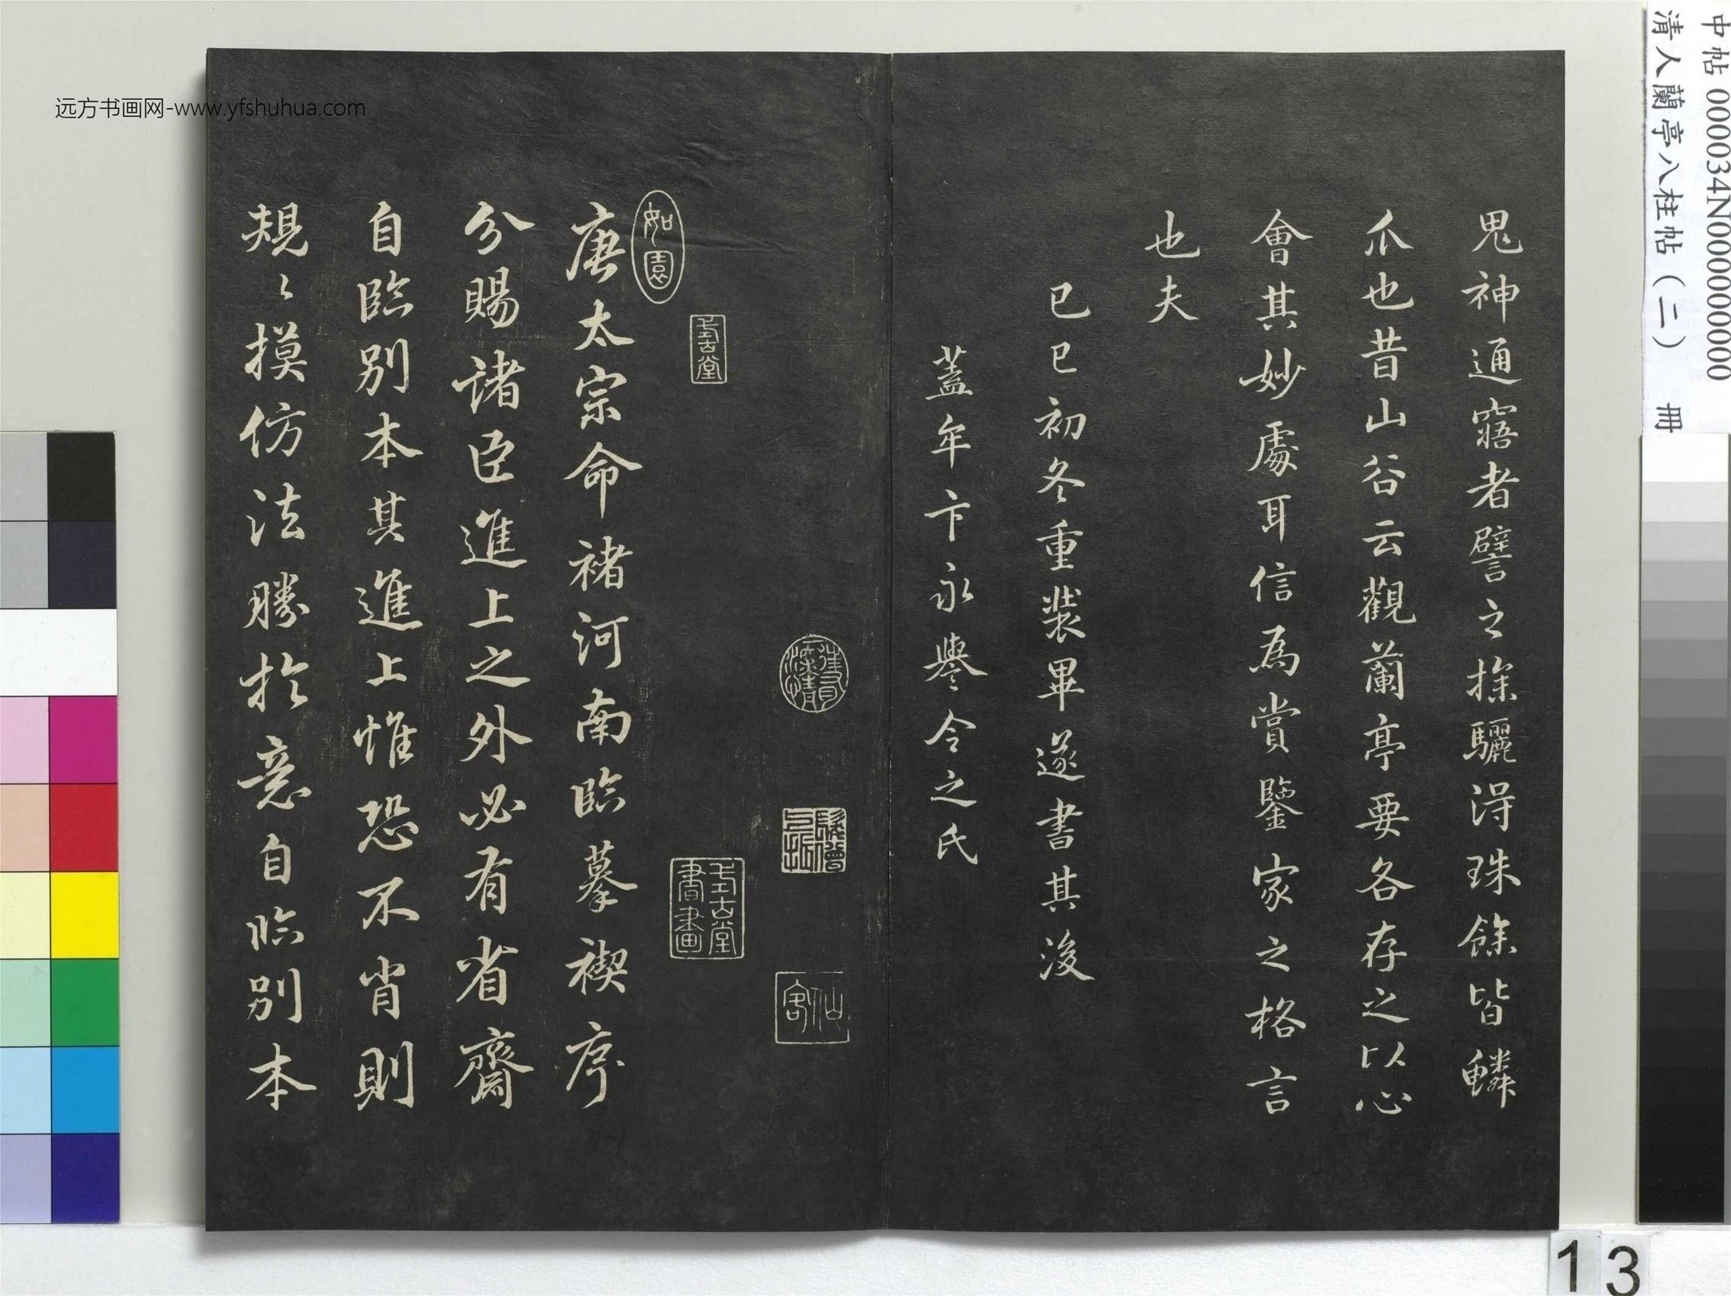 鬼神通寤者譬之探驪得珠餘皆鱗
爪也昔山谷云觀蘭亭要各存之以心
會其妙處耳信為賞鑒家之格言
也夫
己巳初冬重裝畢遂書其後
蓋牟卞永譽令之氏
僊客
式古堂
式古堂書畫
如園
唐太宗命褚河南臨摹禊序
分賜諸臣進上之外必有省齋
自臨別本其進上惟恐不肖則
規〻摸仿法勝於意自臨別本
远方书画网-www.yfshuhua.com
中帖 000034N000000000
清人蘭亭八柱帖(二) 冊
13